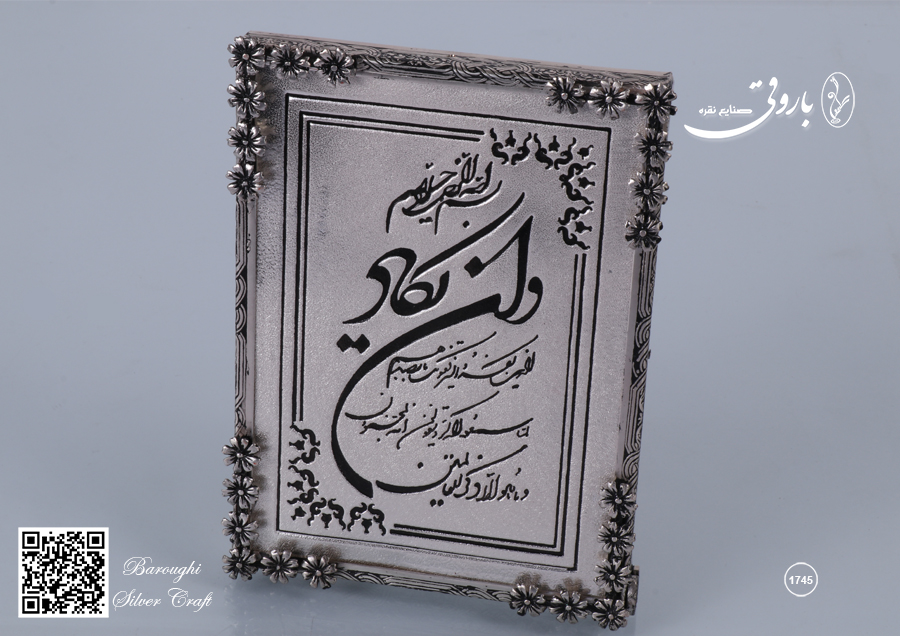 باروقی
صنایع نقره
بسم الله الرحمن الرحیم
وان یکاد
الذین کفروا لیزلقونک بابصارهم
لما سمعوا الذکر و یقولون انه لمجنون
و ما هو الا ذکر للعالمین
Baroughi
Silver Craft
1745